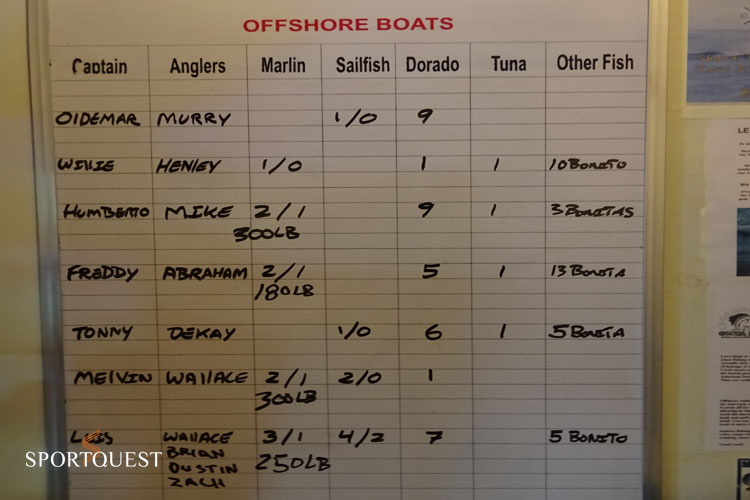 OFFSHORE BOATS
Captain Anglers Marlin Sailfish Dorado Tuna Other Fish
OIDEMAR MURRY 1/0 9
WILLIE HENLEY 1/0 1 1 10 BONITO
HUMBERTO MIKE 2/1 9 1 3 BONITAS
300LB
FREDDY ABRAHAM 2/1 5 1 13 BONITA
180LB
TONNY DEKAY 1/0 6 1 5 BONITA
MELVIN WALLACE 2/1 2/0 1
300LB
LUIS WALLACE 3/1 4/2 7 5 BONITO
BRIAN 250LB
DUSTIN
ZACH
SPORTQUEST